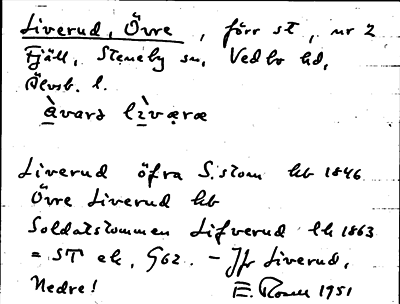 Liverud, Övre, förr st, nr 2
Fjäll, Steneby sn, Vedbo hd,
Älvsb. l.
àvarə lìværæ
Liverud öfra S. stom hb 1846
Övre Liverud hb
Soldatstommen Lifverud lh 1863
= ST ek, G62. – Jfr Liverud,
Nedre! E. Rosell 1951